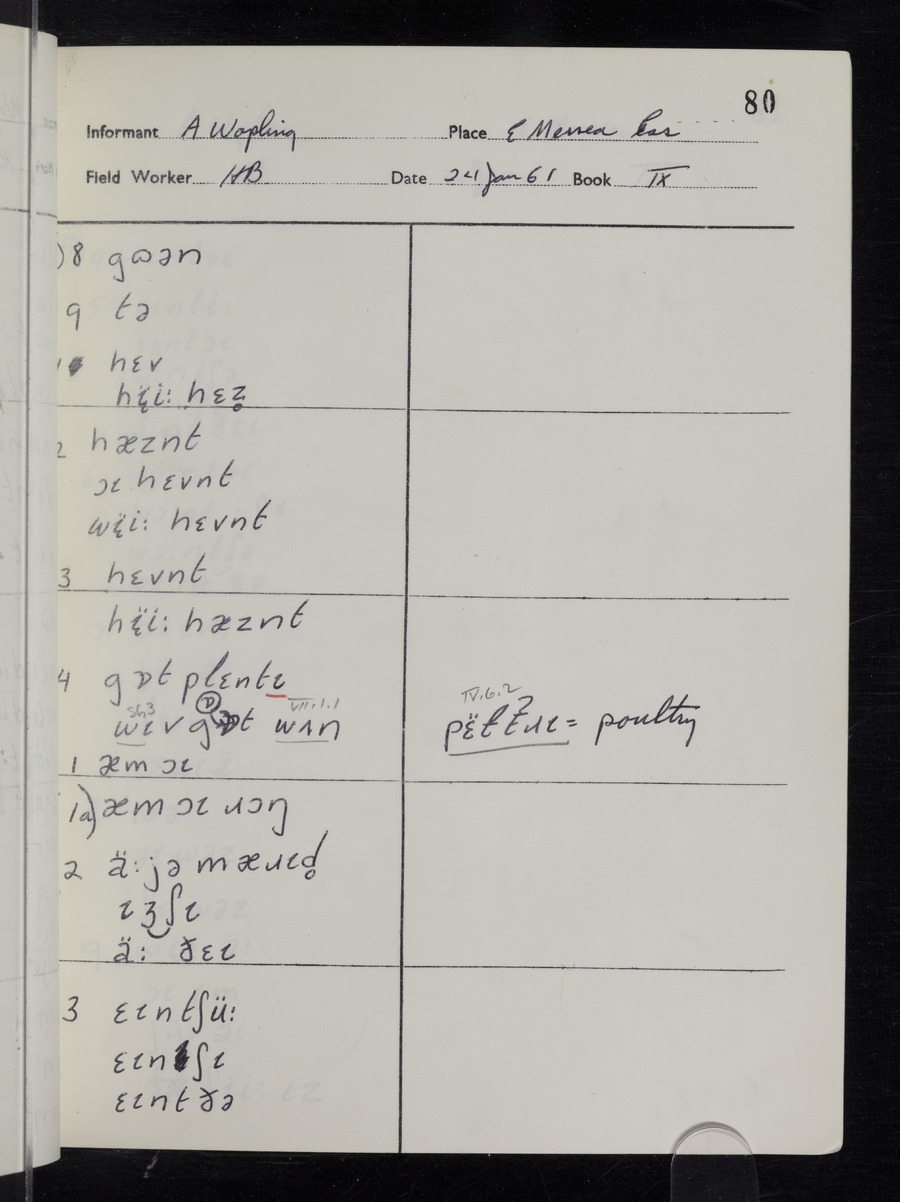 80
Informant A Wopling Place E Mersea Ess
Field Worker HB Date 24 Jan 61 Book IX
8 gɷən
9 tə
1 hɛv
hɪ̈i: hɛz̥
2 hæznt
ɔɪ hɛvnt
wɪ̈i: hɛvnt
3 hɛvnt
hɪ̈i: hæznt
4 gɒt plɛntɪ
VII.1.1
wɪv gɒt wʌn
IV.6.2
pɛ̈ltɹɪ = poultry
1 æm ɔɪ
1a) æm ɔɪ ɹɔŋ
2 ä: jə mæɹɪd̥
ɪʒ‿ʃɪ
ä: ðɛɪ
3 ɛɪntʃü:
ɛɪnʃɪ
ɛɪntðə